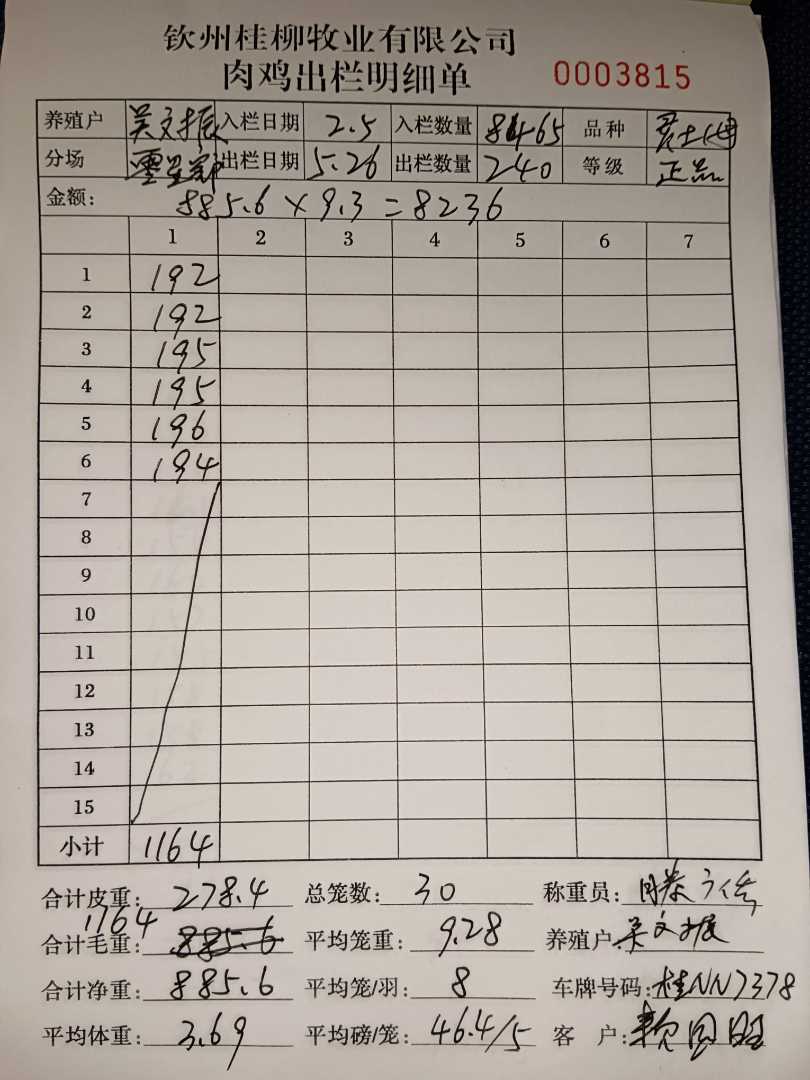 钦州桂柳牧业有限公司
肉鸡出栏明细单 0003815
养殖户 吴文振 入栏日期 2.5 入栏数量 8465 品种
分场 出栏日期 5.26 出栏数量 240 等级 正品
金额: 885.6 × 9.3 = 8236
1 2 3 4 5 6 7
1 192
2 192
3 195
4 195
5 196
6 194
7
8
9
10
11
12
13
14
15
小计 1164
合计皮重: 278.4 总笼数: 30 称重员:
1164
合计毛重: 885.6 平均笼重: 9.28 养殖户 吴文振
合计净重: 885.6 平均笼/羽: 8 车牌号码: 桂NN7378
平均体重: 3.69 平均磅/笼: 46.4/5 客 户: